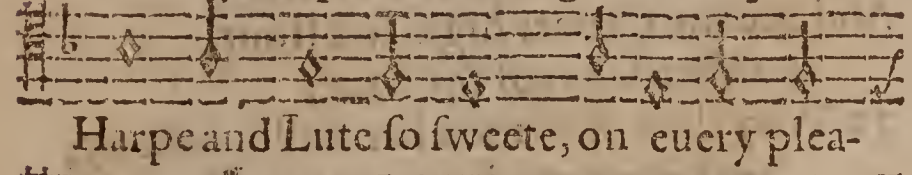 Harpe and Lute ſo ſweete, on euery plea-